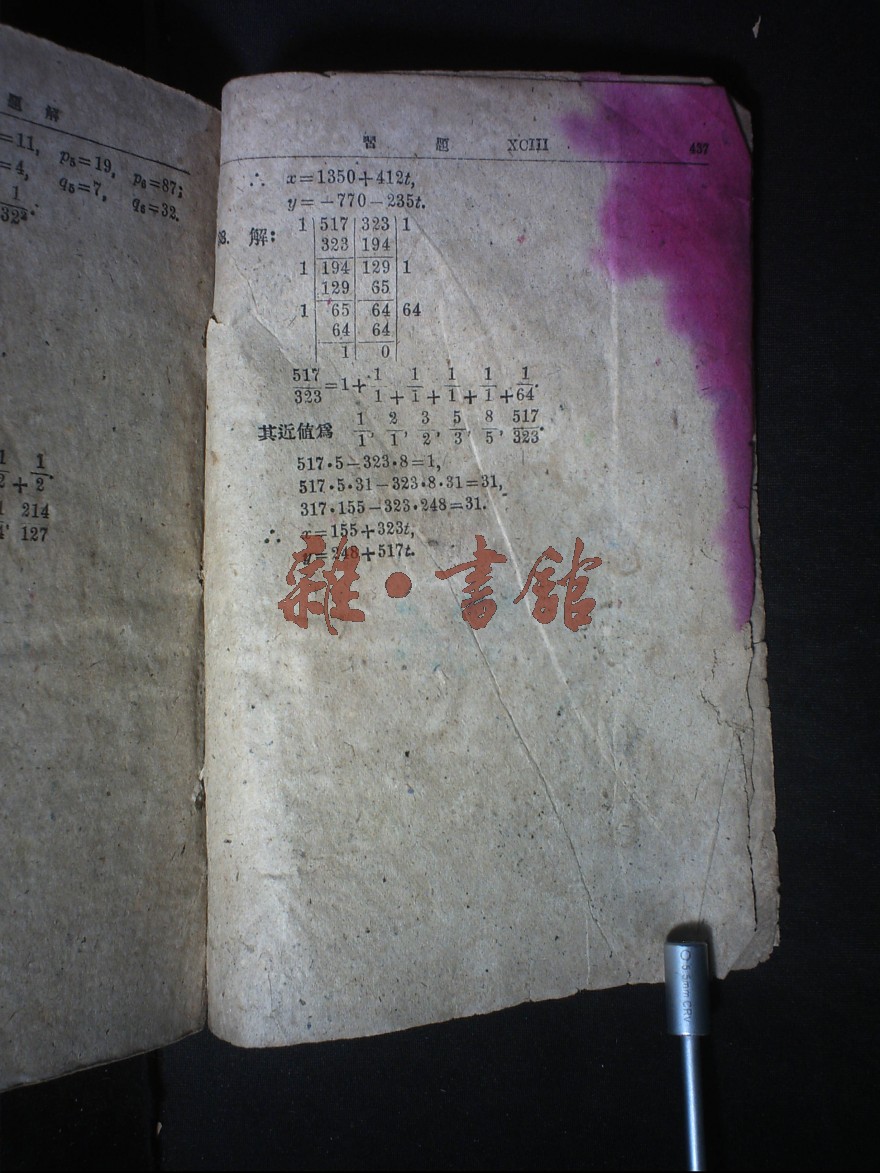 題 解
=11, p₅=19, p₆=87;
=4, q₅=7, q₆=32.
1/32².
1/2 + 1/2.
214
127
習 題 XCIII 437
∴ x=1350+412t,
y=-770-235t.
8. 解: 1 | 517 | 323 | 1
323 | 194
1 | 194 | 129 | 1
129 | 65
1 | 65 | 64 | 64
64 | 64
1 | 0
517/323=1+1/1+1/1+1/1+1/1+1/64.
其近値爲 1/1, 2/1, 3/2, 5/3, 8/5, 517/323.
517·5-323·8=1,
517·5·31-323·8·31=31,
317·155-323·248=31.
∴ x=155+323t,
y=248+517t.
雜·書館
5mm CRV